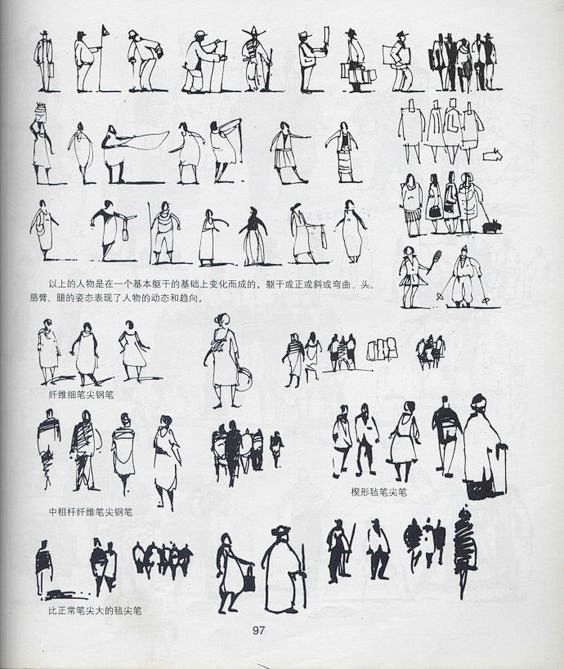 以上的人物是在一个基本躯干的基础上变化而成的。躯干或正或斜或弯曲、头、
胳臂、腿的姿态表现了人物的动态和趋向。
纤维细笔尖钢笔
楔形毡笔尖笔
中粗杆纤维笔尖钢笔
比正常笔尖大的毡尖笔
97